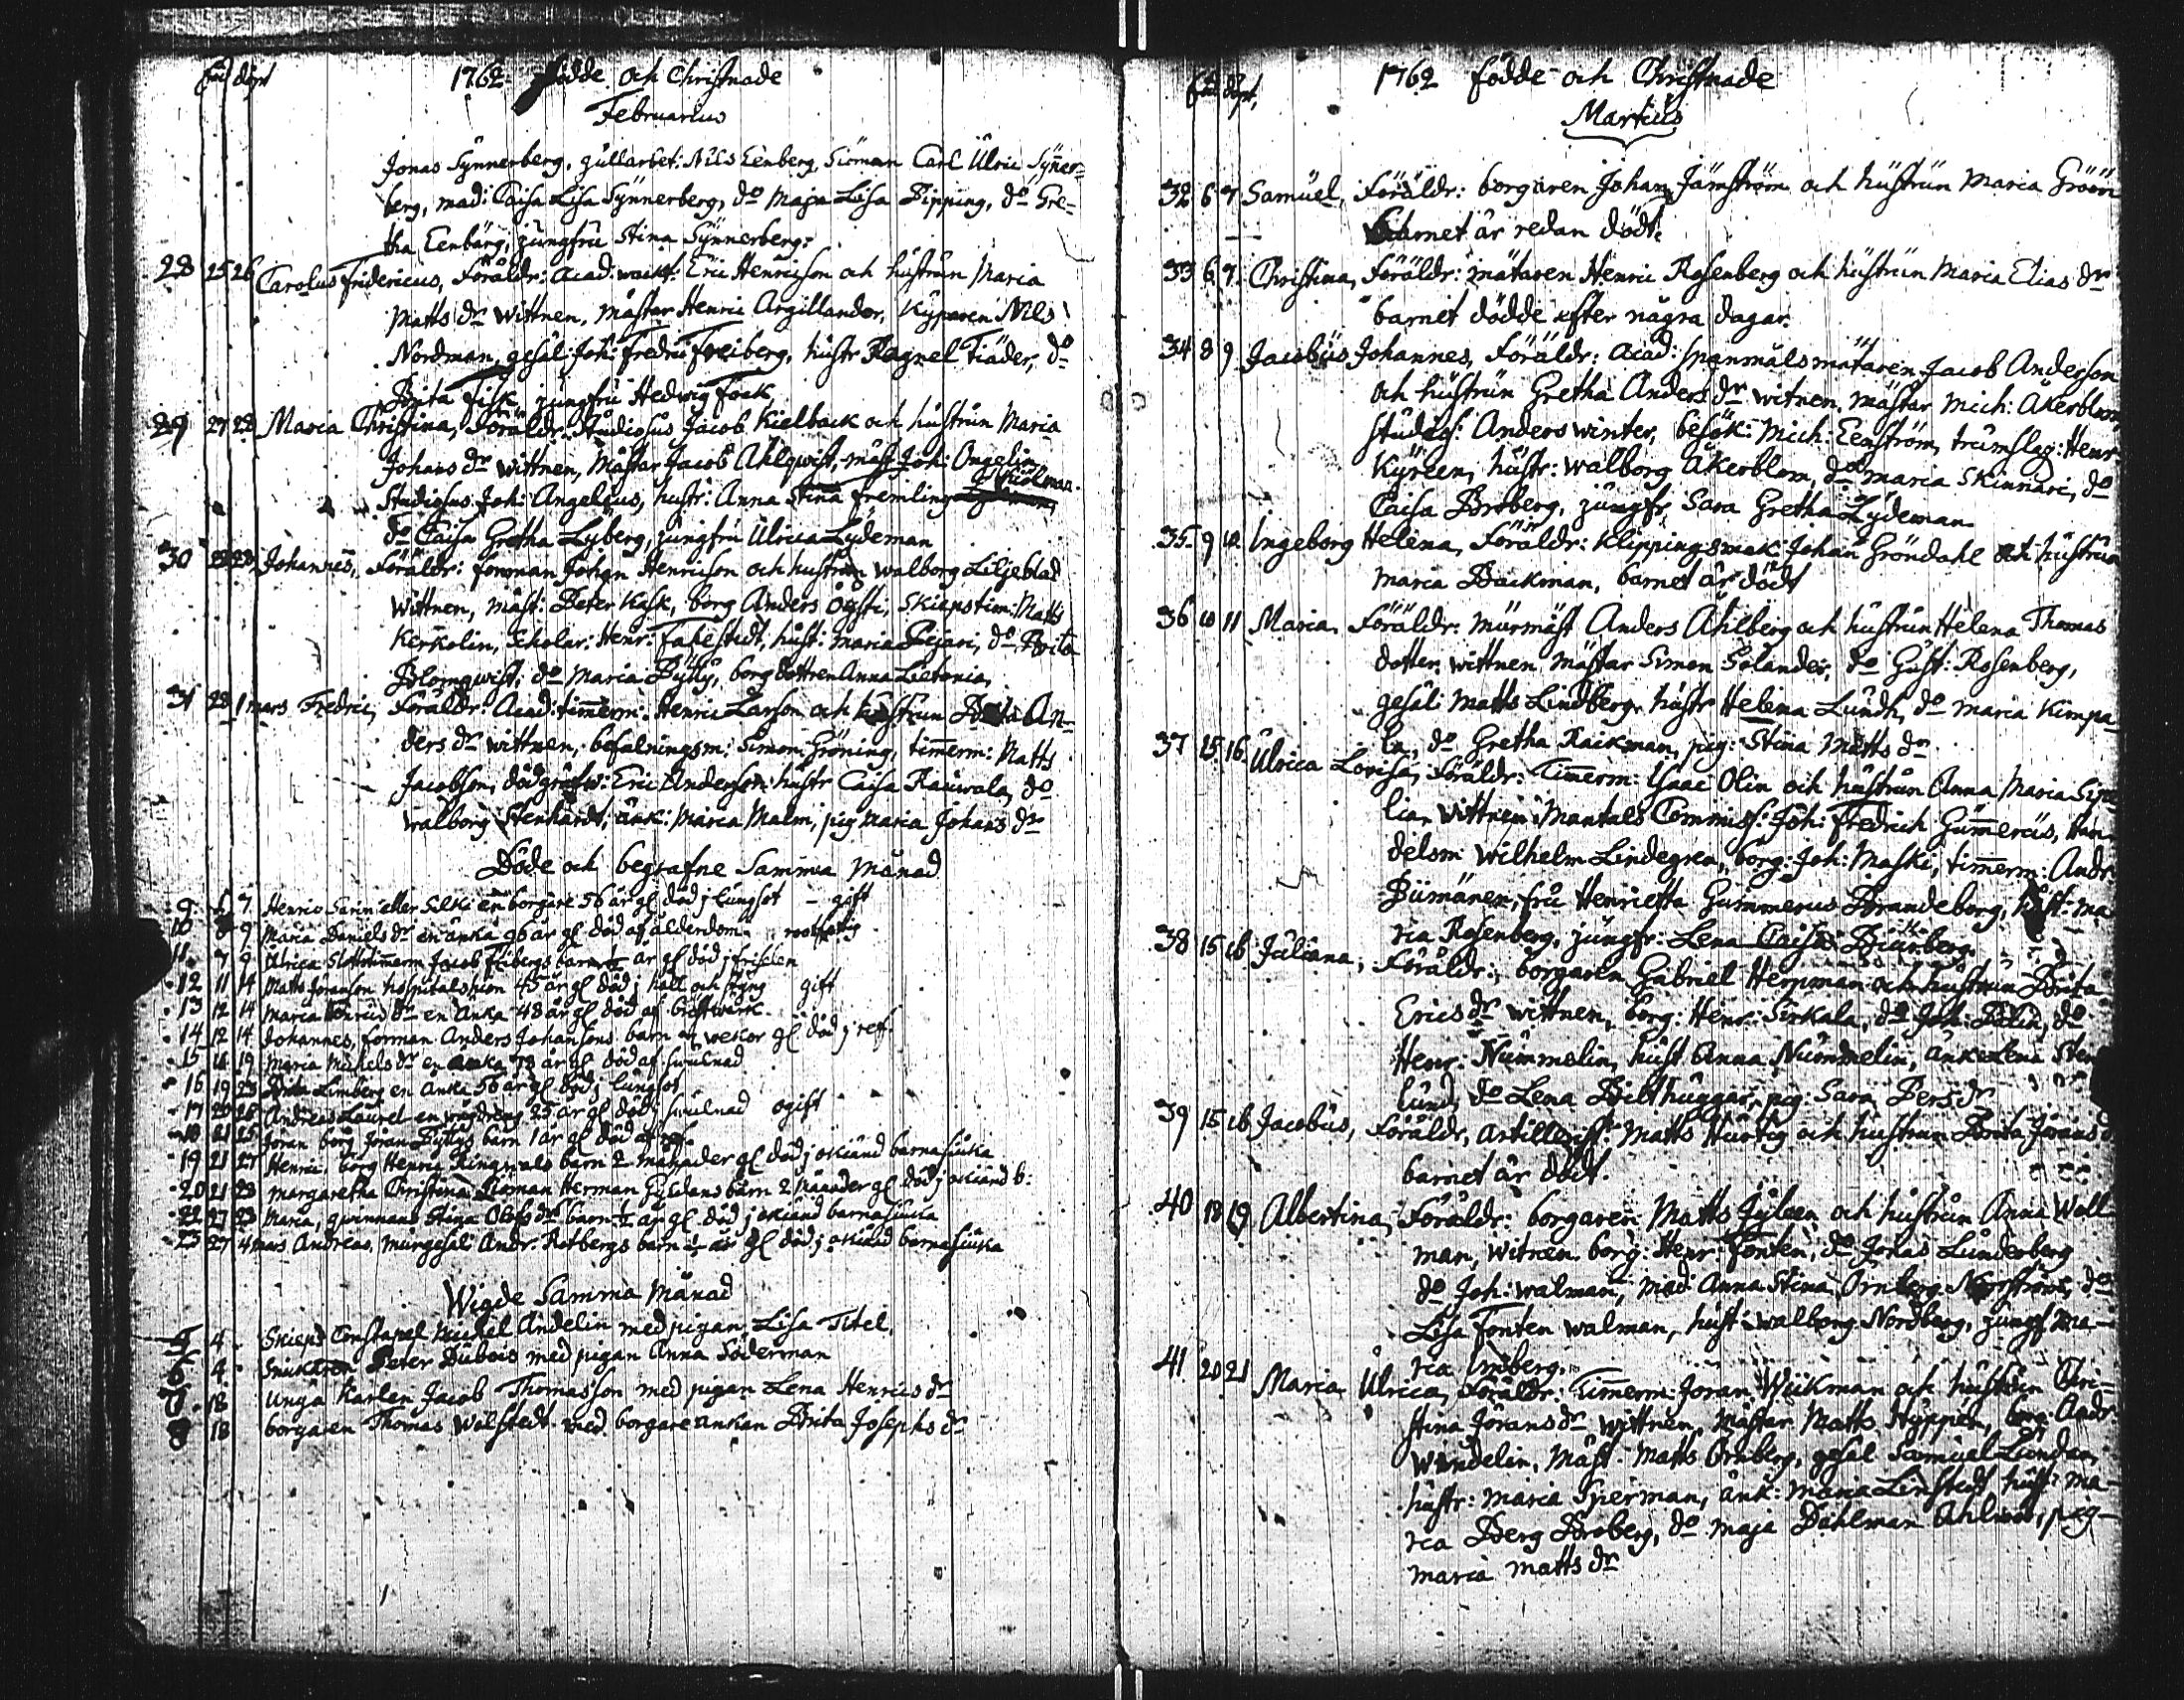 föd döpt 1762 födde och Christnade
Februarius
Jonas Synnerberg, gullarbet: Nils Eenberg, Siöman Carl Ulric Syner-
berg, mad: Caisa Lisa Synnerberg, do Maja Lisa Pipping, do Gre-
tha Eenbärg, jungfru Stina Synnerberg.
28 25 26 Carolus Fridericus, Föräldr: acad: wackt: Eric Henricson och hustrun Maria
Matts dr wittnen, mästar Henric Argillander, Kyparen Nils
Nordman, gesäl: Joh: Fredric Freiberg, hustr Ragnel Tiäder, do
Brita Fisk, jungfru Hedwig Fock
29 27 28 Maria Christina, Föräldr: Studiosus Jacob Kielback och hustrun Maria
Johans dr wittnen, Mästar Jacob Ahlqwist, mäst Joh: Ongelin
Studiosus Joh: Angelius, hustr: Anna Stina Fremling
do Caisa Gretha Lyberg, jungfru Ulrica Lydeman
30 28 Johannes, Föräldr: forman Johan Henricson och hustrun Walborg Liljeblad
Wittnen, mäst: Peter Kask, borg Anders Ogsti, Skiepstim: Matts
Kerkolin, Scholar: Henr: Fahlstedt, hust: Maria Pejari, do Brita
Blomqwist, do Maria Pytty, borg dottren Anna Lietonia,
31 28 1 mars Fredric, Föräldr: Acad: timerm: Henric Larson och hustrun Brita An-
ders dr wittnen, befalningsm: Simon Gröning, timerm: Matts
Jacobson, dödgräfw: Eric Anderson hustr Caisa Rauwala, do
Walborg Stenhardt, änk: Maria Malm, pig Maria Johans dr
Döde och begrafne Samma Månad
9 6 7 Henric Sarin eller Selki en borgare 56 år gl död j lungsot – gift
10 9 Maria Daniels dr en änka 96 år gl död af ålderdom.
11 7 9 Ulrica Slottstimerm Jacob Fribergs barn år gl död j friselen
12 11 14 Matts Joranson hospitalshion 45 år gl död j håll och styng gift
13 12 14 Maria Henrics dr en änka 48 år gl död af bröstwärk
14 12 14 Johannes, forman Anders Johansons barn wekor gl död j ref
15 16 19 Maria Michels dr en änka 78 år gl död af swulnad
16 19 23 Brita Limberg en änka 56 år gl död j lungsot
17 20 28 Andreas Laurel en drängdreng 25 år gl död j swulnad ogift
18 21 25 Joran borg Joran Pyttys barn 1 år gl död af ref.
19 21 27 Henric, borg Henric Ringwals barn 2 månader gl död j okiänd barnasiuka
20 21 23 Margaretha Christina Herman Gyldens barn 2 månader gl död j okiänd b:
22 27 23 Maria, qwinnans Stina Olofs dr barn ½ år gl död j okiänd barnasiuka
23 27 4 mars Andreas, murgesäl Andr: Rotbergs barn ½ år gl död j okiänd barnasiuka
Wigde Samma Månad
5 4 Skieps Constapel Michel Andelin med pigan Lisa Titel.
6 4 Snickaren Peter Dubois med pigan Anna Söderman
7 18 Unga Karlen Jacob Thomasson med pigan Lena Henrics dr
8 18 borgaren Thomas Wolstedt med borgare änkan Brita Josephs dr
föd döpt, 1762 födde och Christnade
Martius
32 6 7 Samuel, Föräldr: borgaren Johan Jämström och hustrun Maria Gröön
Barnet är redan dödt.
33 6 7 Christina, Föräldr: mätaren Henric Rosenberg och hustrun Maria Elias dr
barnet dödde efter några dagar.
34 8 9 Jacobus Johannes, Föräldr: acad: spanmålsmätaren Jacob Anderson
och hustrun Gretha Anders dr witnen, mästar Mich: Åkerblom,
Studios: Anders Winter, besök: Mich: Eenström, trumslag: Henr
Kyreen, hustr: Walborg Åkerblom, do Maria Skinnari, do
Caisa Broberg, jungfr Sara Gretha Lydeman
35 9 12 Ingeborg Helena, Föräldr: Klippingsmak: Johan Gröndahl och hustrun
Maria Backman, barnet är dödt
36 10 11 Maria, Föräldr: murmäst Anders Åhlberg och hustrun Helena Thomas
dotter, wittnen mästar Simon Solander, do Gust: Rosenberg,
gesäl: Matts Lindberg, hustr Helena Lundh, do Maria Kimpa-
la, do Gretha Raikman, pig: Stina Matts dr
37 15 16 Ulrica Lovisa, Föräldr: Timerm: Isaac Olin och hustrun Anna Maria
lia, Wittnen Mantals Commiss: Joh: Fredrich Gummerus, Han-
delsm Wilhelm Lindegren, borg: Joh: Maski, timerm: Andr
Piimänen, fru Henrietta Gummerus Brandeborg, hust: Ma-
ria Rosenberg, jungfr: Lena Caisa Biurberg
38 15 16 Juliana, Föräldr: borgaren Gabriel Herpman och hustrun Brita
Erics dr wittnen, borg: Henr: Sirkala, do Joh: Palin, do
Henr: Nummelin, hust Anna Nummelin, änk: Lena Sten-
lund, do Lena Bilthuggar, pig: Sara Pers dr
39 15 16 Jacobus, Föräldr, Artillerist: Matts Hurtig och hustrun Brita Jörans d
barnet är dödt.
40 18 19 Albertina, Föräldr: borgaren Matts Jyleen och hustrun Anna Wall-
man, witnen borg: Henr: Fonten, do Jonas Lunderberg
do Joh: Walman, mad: Anna Stina Ornberg Norström, do
Lisa Fonten Walman, hust: Walborg Nordberg, jungf Ma-
ria Imberg.
41 20 21 Maria Ulrica, Föräldr: Timerm: Joran Wiikman och hustrun Chri-
stina Jörans dr wittnen, Mästar Matts Hyppen, borg Andr
Windelin, Mäst: Matts Örnberg, gesäl Samuel Lunden,
hustr: Maria Sperman, änk: Maria Linstedt, hust: Ma-
ria Berg Broberg, do Maja Dahlman pig-
Maria Matts dr